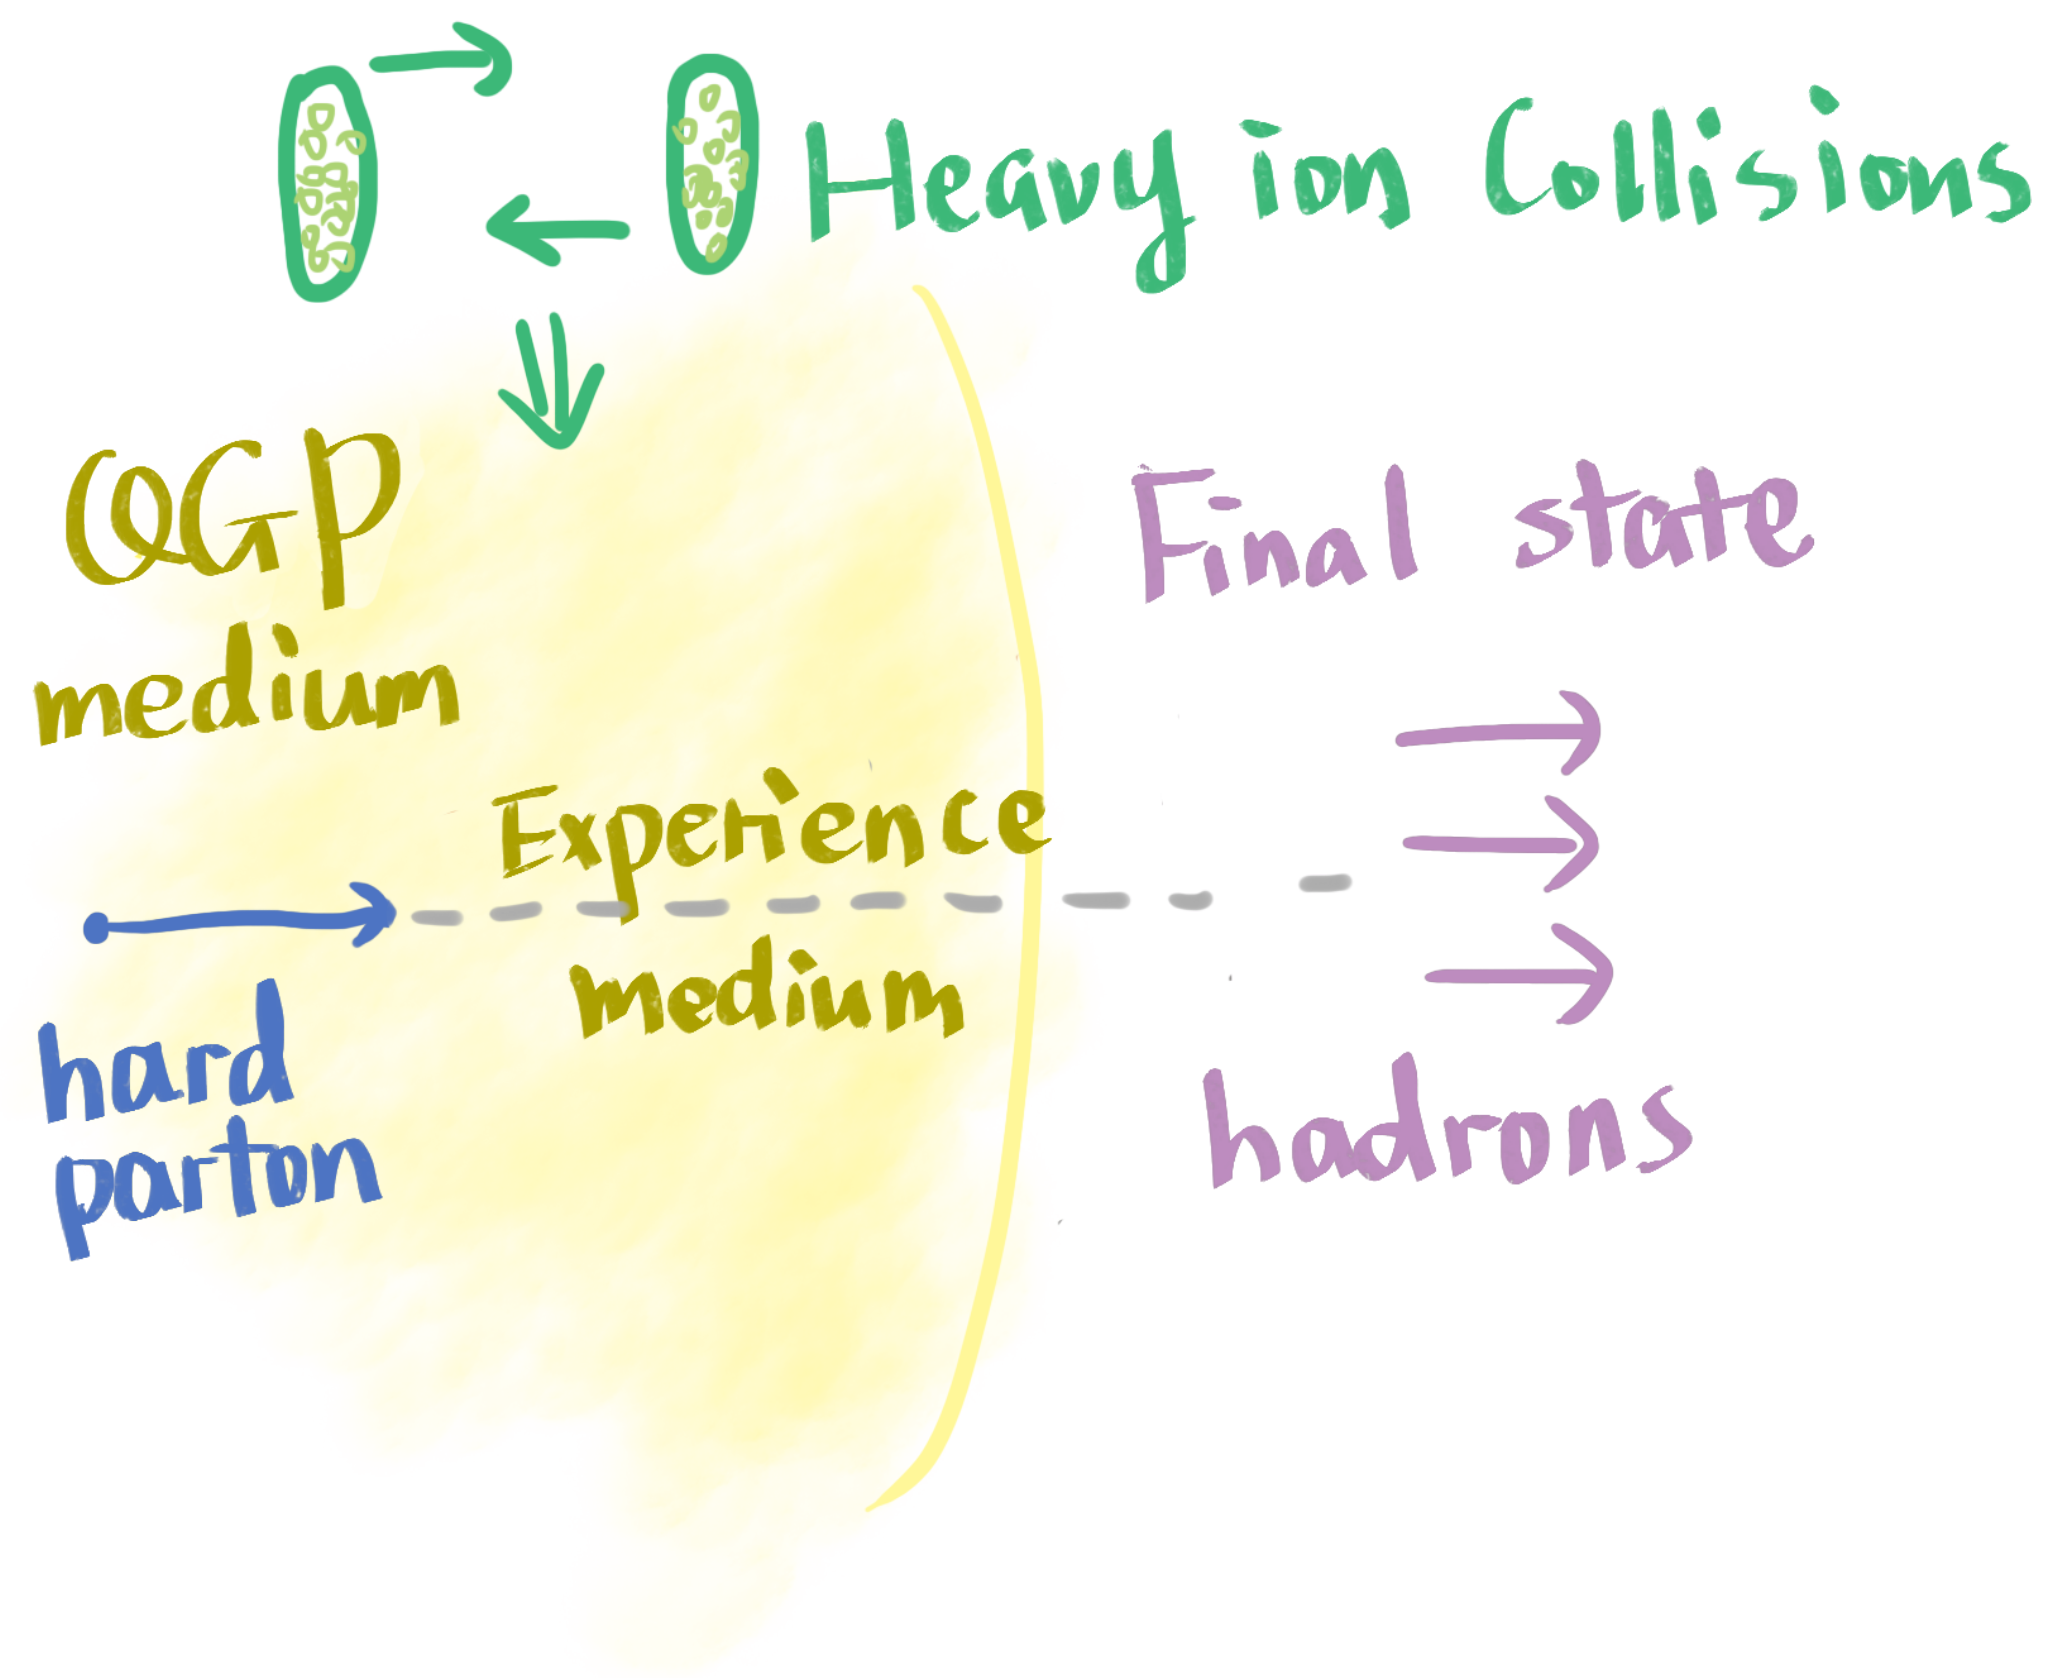 Heavy ion Collisions
QGP
medium
Final state
Experience
medium
hard
parton
hadrons